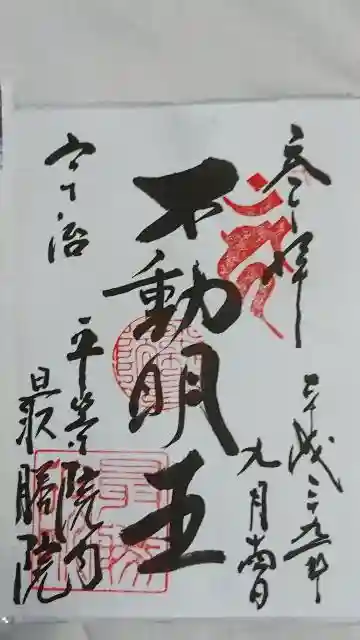 参拝
平成二十九年
九月
不動明王
宇治
平等院内
最勝院